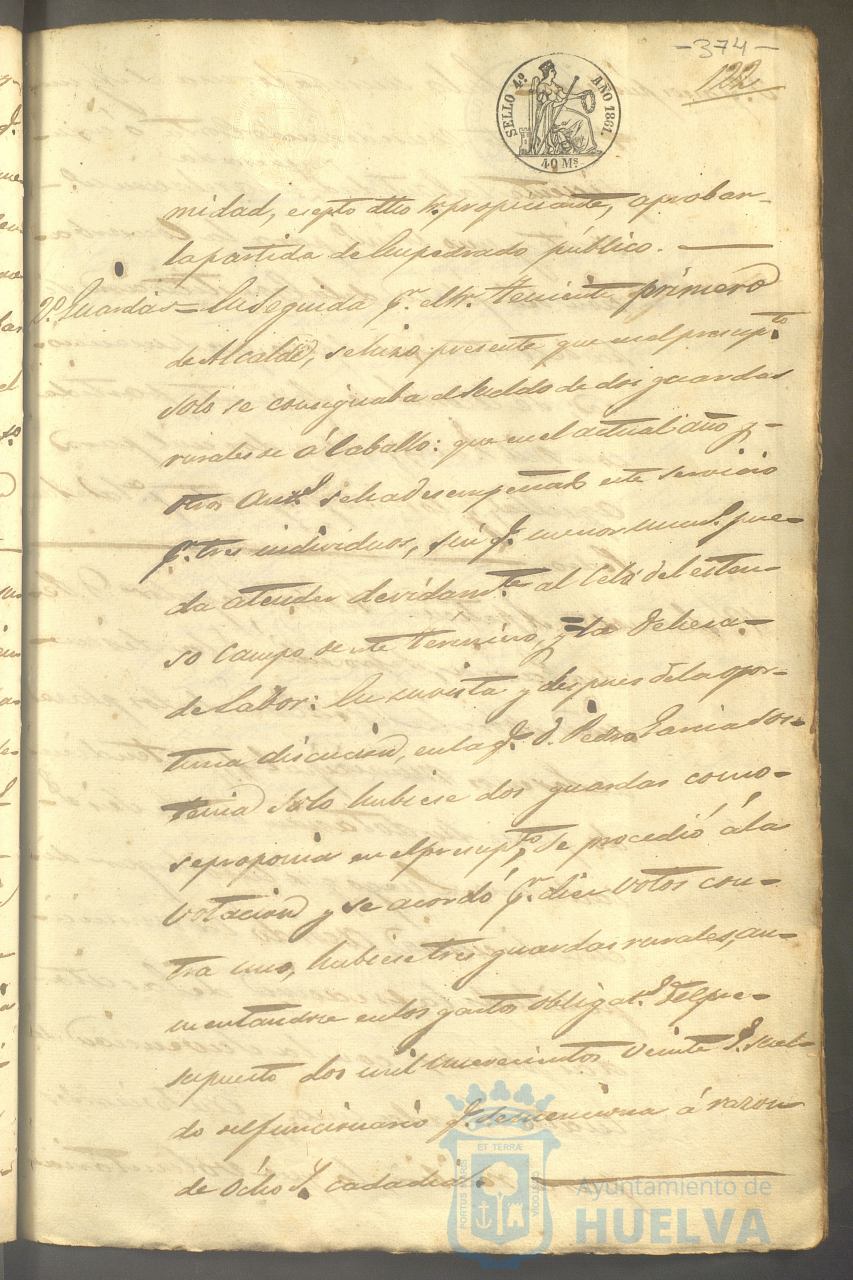 -374-
122
SELLO 4º AÑO 1861.
40 Ms
midad, esepto dho Sr. propiciante, aprobar
la partida de Empedrado público.
2º. Guardas = En seguida pr. el Sr. teniente primero
de Alcalde, se hizo presente que en el presupto.
solo se consignaba el sueldo de dos guardas
rurales á Caballo: que en el actual año y
otros ants. se ha desempeñado este servicio
pr. tres individuos, sin q. menor num. pue-
da atender devidamte. al celo del esten-
so campo de este término, y la Dehesa
de Labor: En su vista y despues de la opor-
tuna discucion, en la q. D. Pedro Garcia sos-
tenia solo hubiese dos guardas como
se proponia en el presupto. se procedió á la
votacion y se acordó pr. diez votos con-
tra uno, hubiese tres guardas rurales, au-
mentandose en los gastos obligats. del pre-
supuesto dos mil nuevecientos veinte rs. suel-
do del funcionario q. se menciona á razon
de Ocho rs. cada dia.
PORTUS MARIS ET TERRÆ CUSTODIA
Ayuntamiento de
HUELVA